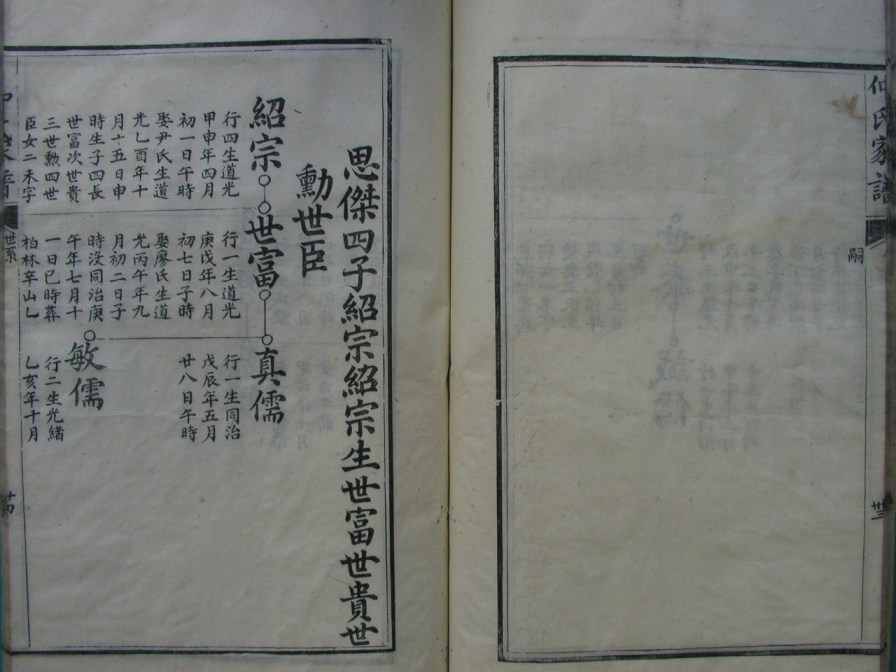 氏家譜
嗣
思傑四子紹宗紹宗生世富世貴世
勳世臣
紹宗
行四生道光
甲申年四月
初一日午時
娶尹氏生道
光乙酉年十
月十五日申
時生子四長
世富次世貴
三世勲四世
臣女二未字
世富
行一生道光
庚戌年八月
初七日子時
娶廖氏生道
光丙午年九
月初二日子
時没同治庚
午年七月十
一日巳時葬
柏林辛山乙
真儒
行一生同治
戊辰年五月
廿八日午時
敏儒
行二生光緒
乙亥年十月
世系